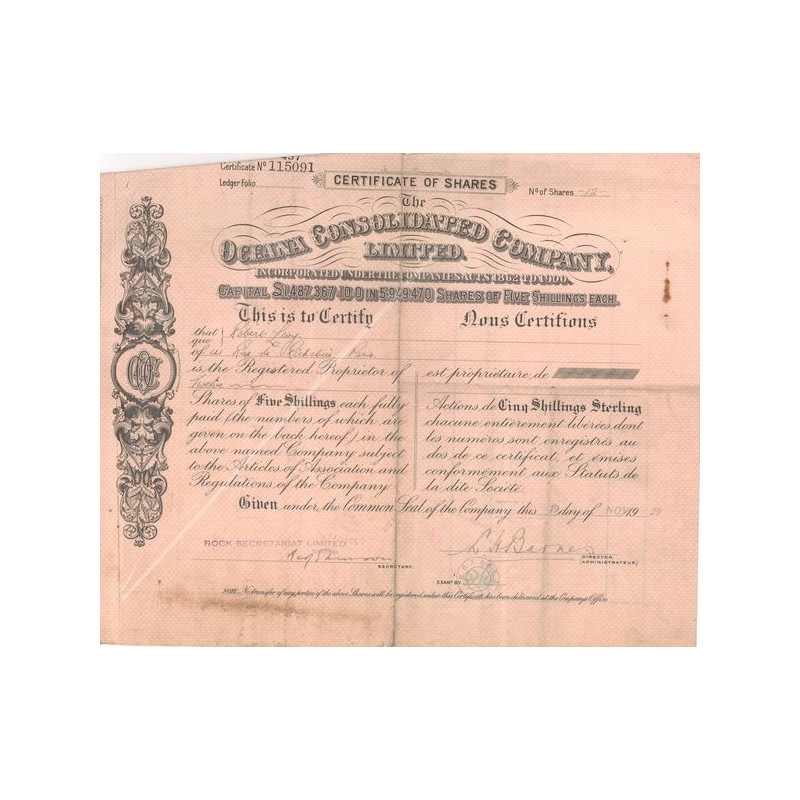 Certificate Nº 115091
Ledger Folio
CERTIFICATE OF SHARES
Nº of Shares -12-
The
OCEANA CONSOLIDATED COMPANY,
LIMITED.
INCORPORATED UNDER THE COMPANIES ACTS 1862 TO 1900.
CAPITAL £1,487,367.10.0 IN 5,949,470 SHARES OF FIVE SHILLINGS EACH.
This is to Certify
that Robert Levy
que
of Rue de Richelieu Paris
is the Registered Proprietor of
Twelve
Shares of Five Shillings each fully
paid (the numbers of which are
given on the back hereof) in the
above named Company subject
to the Articles of Association and
Regulations of the Company.
Nous Certifions
est propriétaire de
Actions de Cinq Shillings Sterling
chacune entièrement libérées, dont
les numéros sont enregistrés au
dos de ce certificat, et émises
conformément aux Statuts de
la dite Société.
Given under the Common Seal of the Company this day of NOV 19
ROCK SECRETARIAT LIMITED.
SECRETARY.
L H Barnes
DIRECTOR.
(ADMINISTRATEUR)
EXAMD BY
NOTE: No transfer of any portion of the above Shares will be registered unless this Certificate has been delivered at the Company's Office.